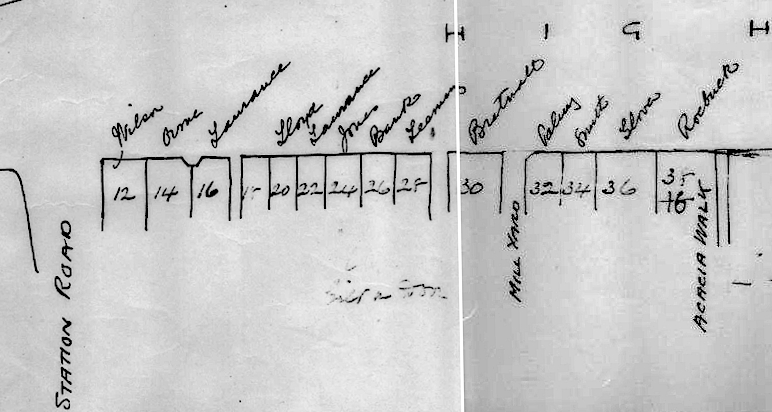 H I G H
Wilson Orme Laurance Lloyd Laurance Jones Bank Leeman Bratnell Palmy Smith Glover Roebuck
12 14 16 18 20 22 24 26 28 30 32 34 36 38
16
MILL YARD
ACACIA WALK
STATION ROAD